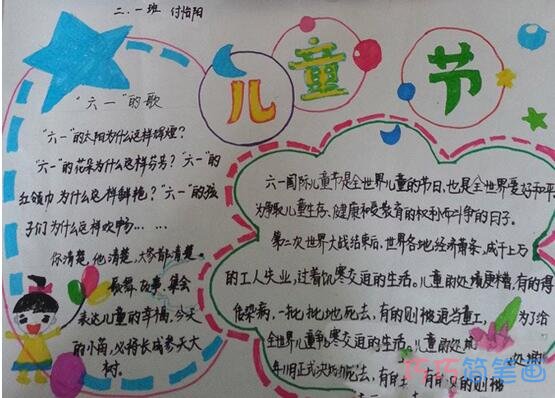 二.一班 付怡阳
儿童节
"六一"的歌
"六一"的太阳为什么这样辉煌？
"六一"的花朵为什么这样芬芳？"六一"的
红领巾为什么这样鲜艳？"六一"的孩
子们为什么这样欢畅……
你清楚，他清楚，大家都清楚。
歌舞、故事、集会
表达儿童的幸福，今天
的小苗，必将长成参天大
树。
六一国际儿童节是全世界儿童的节日，也是全世界爱好和平
为争取儿童生存、健康和受教育的权利而斗争的日子。
第二次世界大战结束后，世界各地经济萧条，成千上万
的工人失业，过着饥寒交迫的生活。儿童的处境更糟，有的得
传染病，一批批地死去，有的则被迫当童工，为了给
全世界
饥寒交迫的生活。儿童的处
处境
死去，有的
有的则被
巧巧简笔画